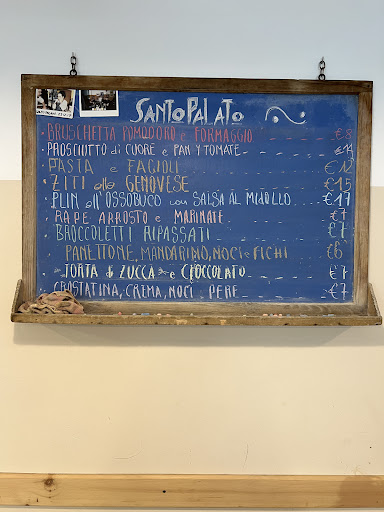 SANTOPALATO
BRUSCHETTA POMODORO e FORMAGGIO €8
PROSCIUTTO di CUORE e PAN Y TOMATE €14
PASTA e FAGIOLI €12
ZITI alla GENOVESE €15
PLIN all'OSSOBUCO con SALSA AL MIDOLLO €17
RAPE ARROSTO e MARINATE €7
BROCCOLETTI RIPASSATI €7
PANETTONE, MANDARINO, NOCI e FICHI €6
TORTA di ZUCCA e CIOCCOLATO €7
CROSTATINA, CREMA, NOCI e PERE €7